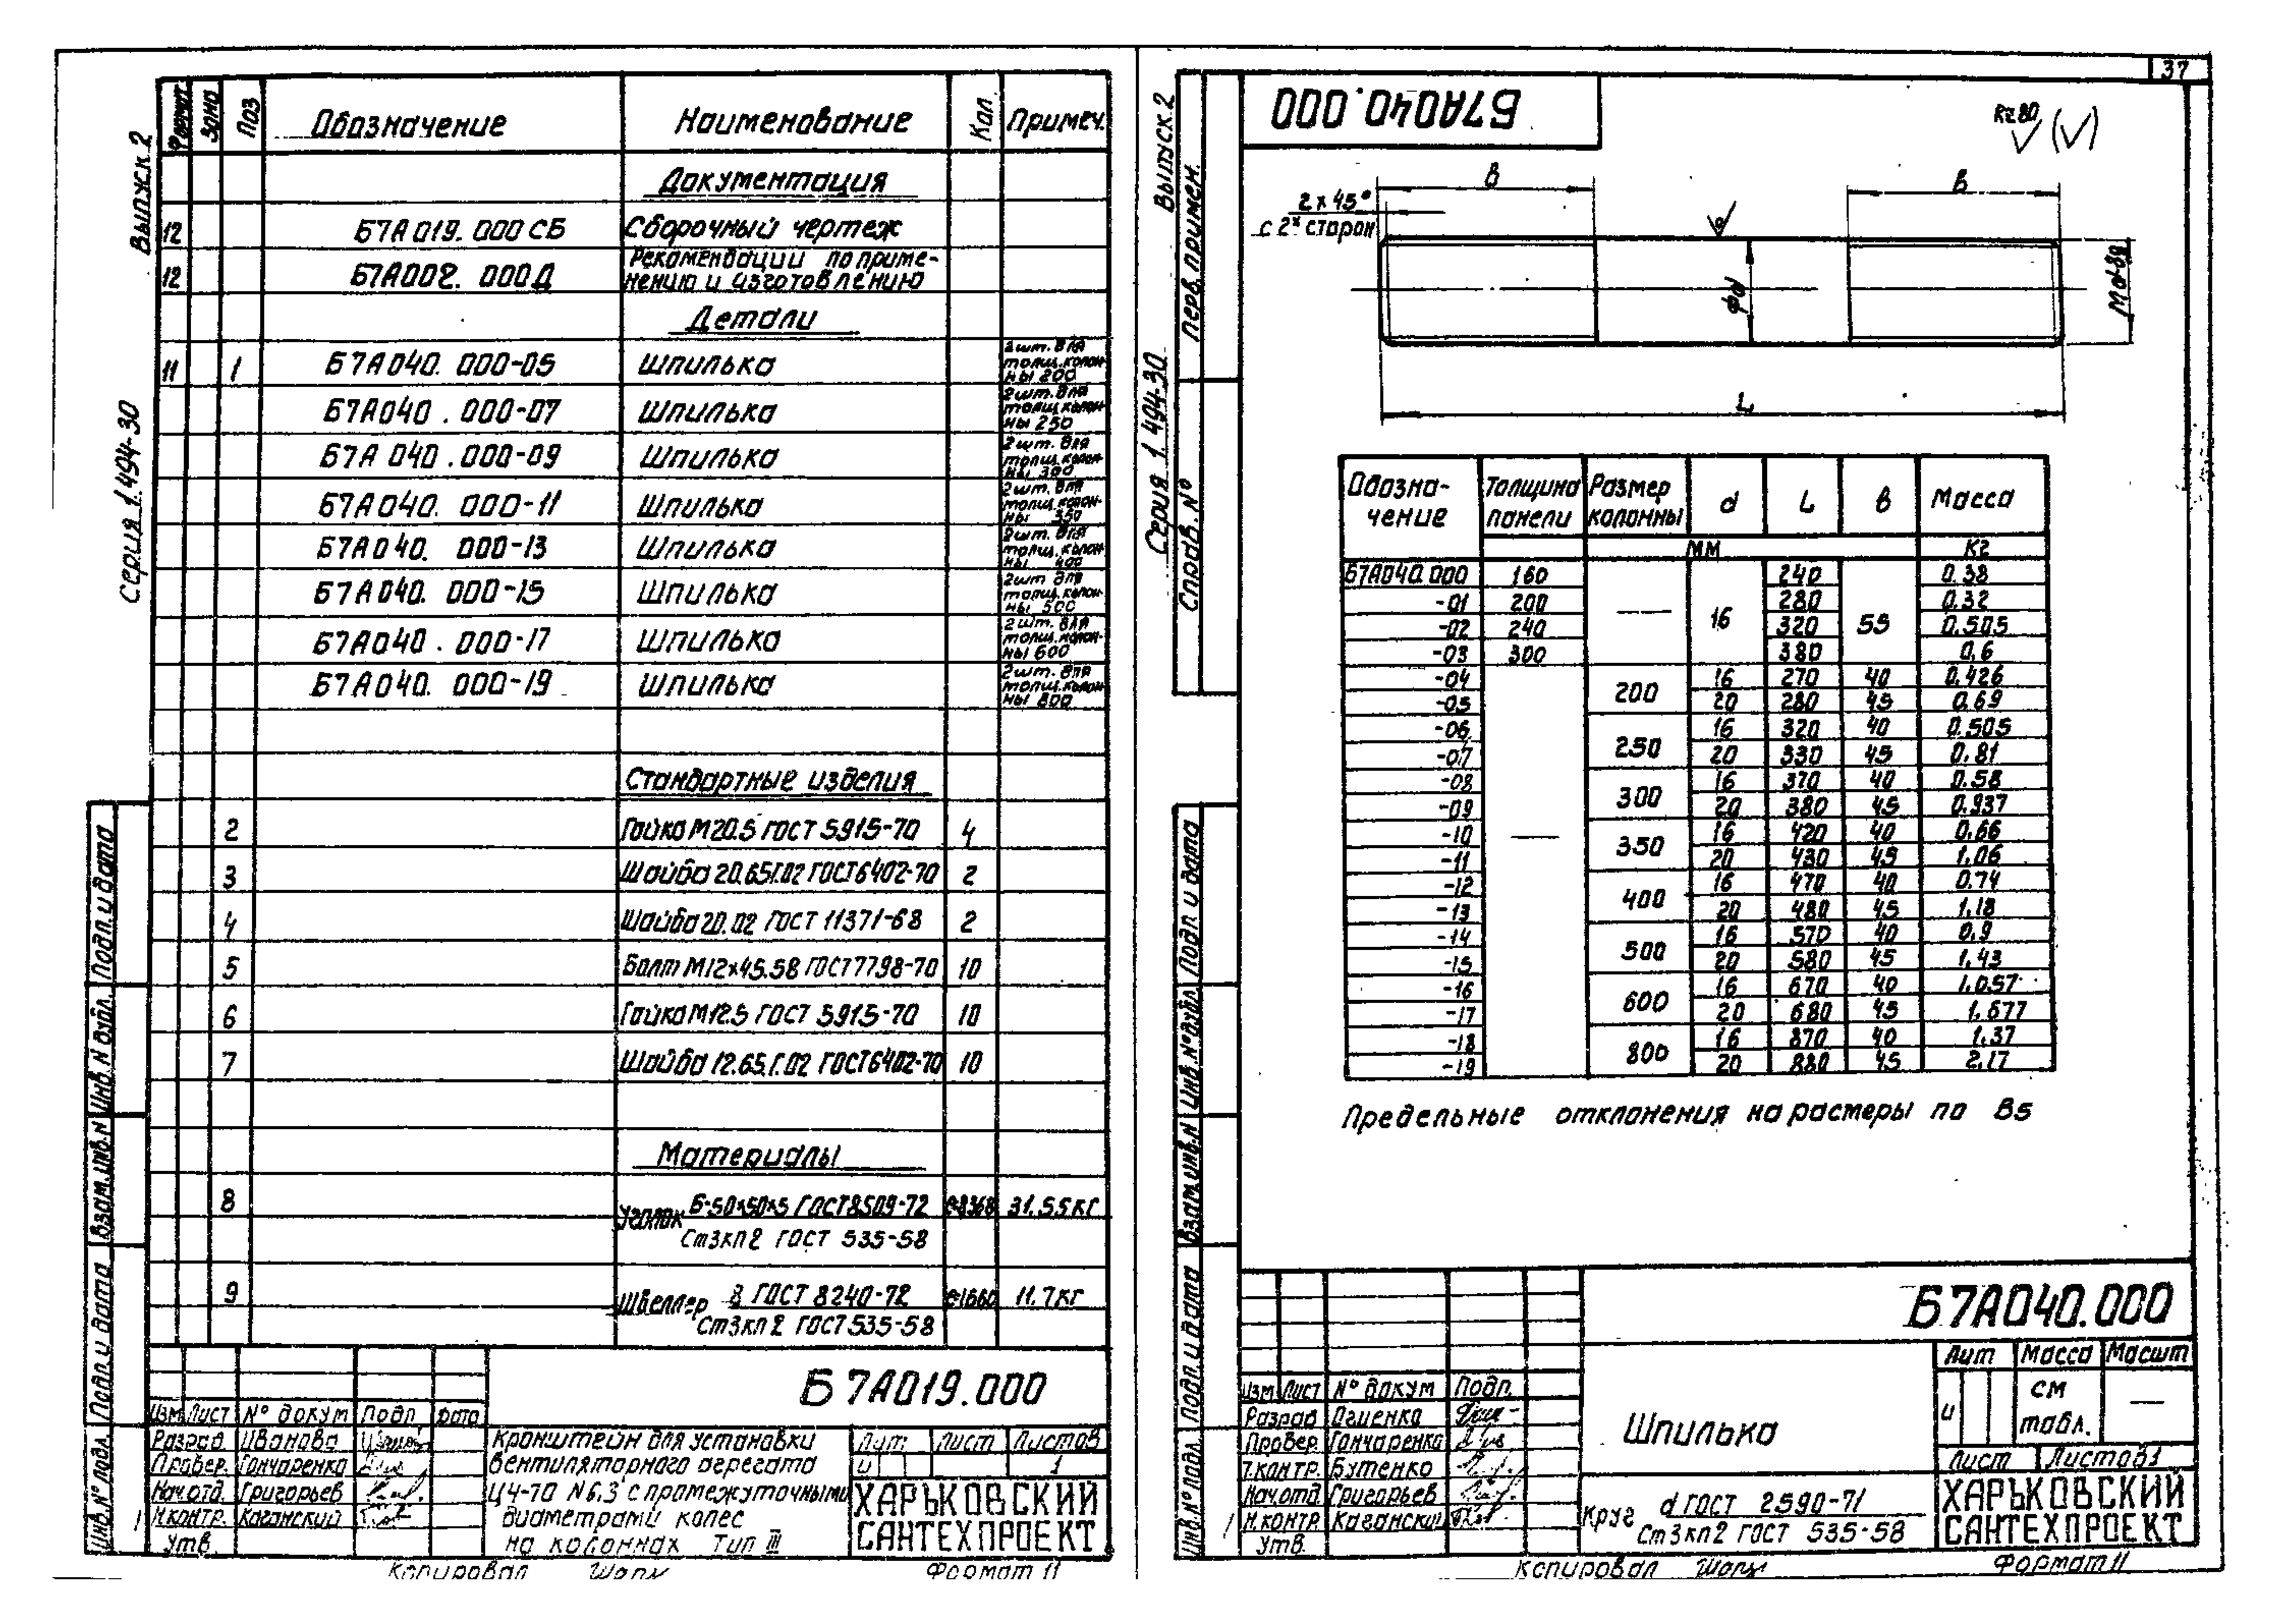 Серия 1.494-30 Выпуск 2
Формат Зона Поз Обозначение Наименование Кол Примеч.
Документация
12 Б7А019.000СБ Сборочный чертеж
12 Б7А002.000Д Рекомендации по приме-
нению и изготовлению
Детали
11 1 Б7А040.000-05 Шпилька 2шт. для
толщ.колон-
ны 200
Б7А040.000-07 Шпилька 2шт. для
толщ.колон-
ны 250
Б7А040.000-09 Шпилька 2шт. для
толщ.колон-
ны 300
Б7А040.000-11 Шпилька 2шт. для
толщ.колон-
ны 350
Б7А040.000-13 Шпилька 2шт. для
толщ.колон-
ны 400
Б7А040.000-15 Шпилька 2шт для
толщ.колон-
ны 500
Б7А040.000-17 Шпилька 2шт. для
толщ.колон-
ны 600
Б7А040.000-19 Шпилька 2шт. для
толщ.колон-
ны 800
Стандартные изделия
2 Гайка М20.5 ГОСТ 5915-70 4
3 Шайба 20.65Г.02 ГОСТ6402-70 2
4 Шайба 20.02 ГОСТ 11371-68 2
5 Болт М12×45.58 ГОСТ7798-70 10
6 Гайка М12.5 ГОСТ 5915-70 10
7 Шайба 12.65.Г.02 ГОСТ6402-70 10
Материалы
8 Уголок Б-50×50×5 ГОСТ8509-72 ℓ-8368 31.55кг
Ст3кп2 ГОСТ 535-58
9 Швеллер 8 ГОСТ 8240-72 ℓ-1660 11.7кг
Ст3кп2 ГОСТ535-58
Подп. и дата
Инв. N дубл.
Взам. инв. N
Подп. и дата
Инв. N° подл.
Б7А019.000
Изм Лист N° докум Подп Дата
Разраб Иванова
Провер. Гончаренко
Нач.отд. Григорьев
Н.контр. Каганский
Утв.
Кронштейн для установки
вентиляторного агрегата
Ц4-70 N6,3 с промежуточными
диаметрами колес
на колоннах Тип III
Лит Лист Листов
и 1
ХАРЬКОВСКИЙ
САНТЕХПРОЕКТ
Копировал Формат 11
37
Серия 1.494-30 Выпуск 2
Перв. примен.
Справ. N°
Б7А040.000
Rz80
(√)
2×45°
с 2х сторон
в
в
ϕd
Мd-8g
L
Обозна-
чение
Толщина
панели
Размер
колонны
d L в Масса
мм кг
Б7А040.000 160 — 16 240 55 0.38
-01 200 280 0.32
-02 240 320 0.505
-03 300 380 0.6
-04 — 200 16 270 40 0.426
-05 20 280 45 0.69
-06 250 16 320 40 0.505
-07 20 330 45 0.81
-08 300 16 370 40 0.58
-09 20 380 45 0.937
-10 350 16 420 40 0.66
-11 20 430 45 1.06
-12 400 16 470 40 0.74
-13 20 480 45 1.18
-14 500 16 570 40 0.9
-15 20 580 45 1.43
-16 600 16 670 40 1.057
-17 20 680 45 1.677
-18 800 16 870 40 1.37
-19 20 880 45 2.17
Предельные отклонения на растеры по В5
Подп. и дата
Инв. N° дубл.
Взам. инв. N
Подп. и дата
Инв. N° подл.
Б7А040.000
Изм Лист N° докум Подп.
Разраб Огиенко
Провер. Гончаренко
Т.контр. Бутенко
Нач.отд Григорьев
Н.контр Каганский
Утв.
Шпилька
Лит Масса Масшт
и см
табл. —
Лист Листов 1
Круг d ГОСТ 2590-71
Ст3кп2 ГОСТ 535-58
ХАРЬКОВСКИЙ
САНТЕХПРОЕКТ
Копировал Формат 11